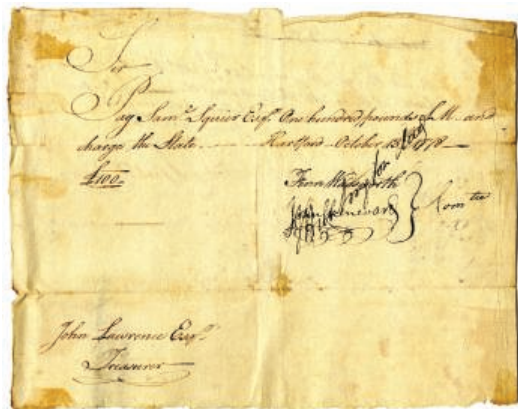 Sir
Pay Sam.l Squier Esq.r One hundred pounds L M and
charge the State. Hartford October 15 1778
£100. Fenn Wadsworth
John Chenevard } Com tee
John Lawrence Esq.r
Treasurer